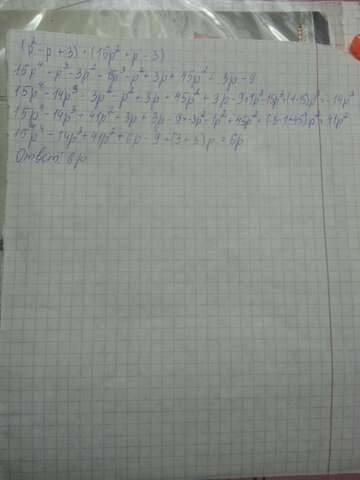 (p² - p + 3) · (15p² + p - 3)
15p⁴ + p³ - 3p² - 15p³ - p² + 3p + 45p² + 3p - 9
15p⁴ - 14p³ - 3p² - p² + 3p + 45p² + 3p - 9 = 1p³ - 15p³ = (1-15)p³ = -14p³
15p⁴ - 14p³ + 41p² + 3p + 3p - 9 = -3p² - 1p² + 45p² = (-3-1+45)p² = 41p²
15p⁴ - 14p³ + 41p² + 6p - 9 = (3+3)p = 6p
Ответ 6p